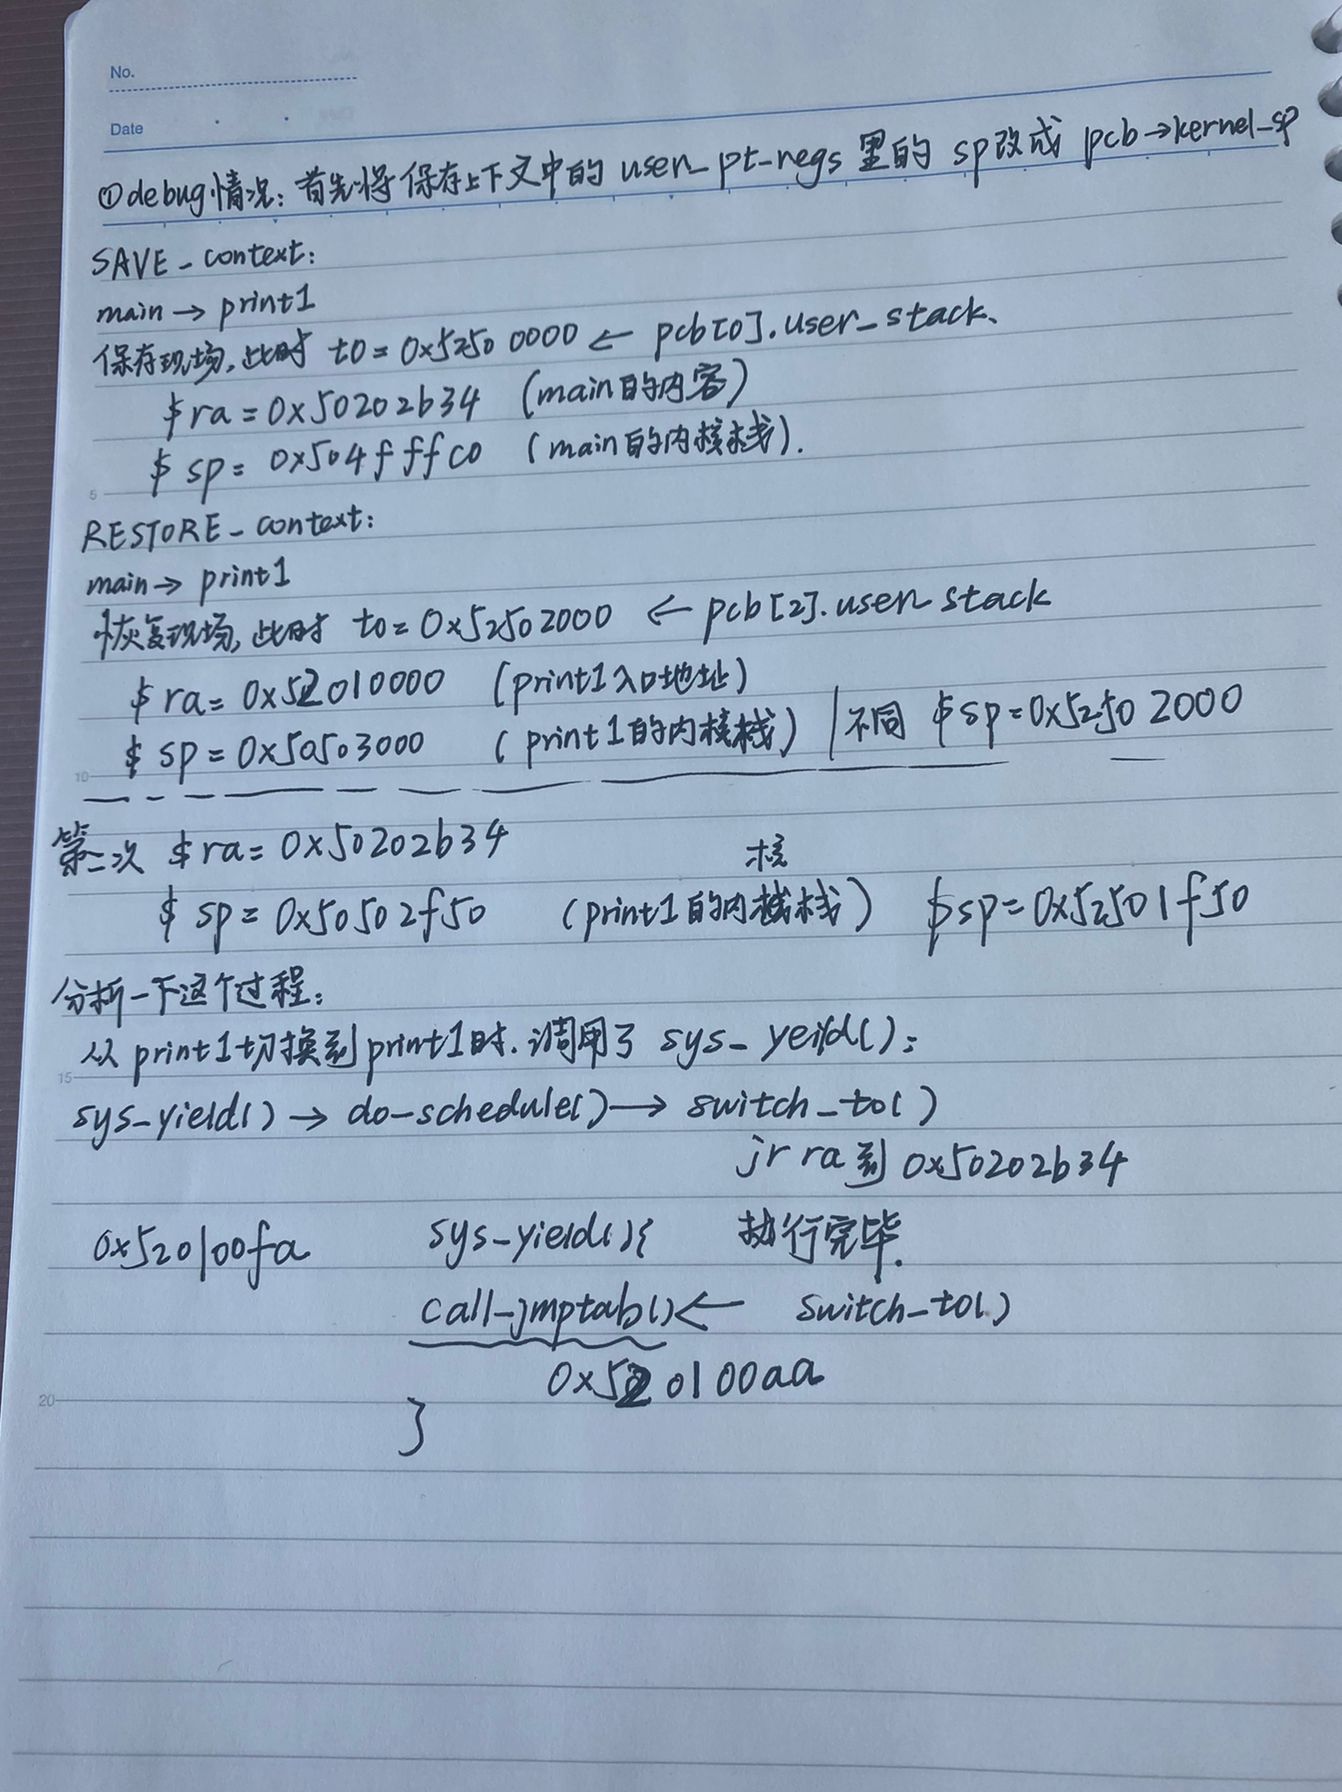 No.
Date
①debug情况：首先将保存上下文中的 user_pt_regs 里的 sp改成 pcb→kernel_sp
SAVE_context:
main → print1
保存现场，此时 t0 = 0x52500000 ← pcb[0].user_stack、
$ra = 0x50202b34 (main的内容)
$ sp = 0x504fffc0 (main的内核栈).
5
RESTORE_context:
main → print1
恢复现场，此时 t0 = 0x52502000 ← pcb[2].user_stack
$ ra = 0x52010000 (print1入口地址)
$ sp = 0x50503000 (print1的内核栈) | 不同 $sp = 0x52502000
10
第二次 $ra = 0x50202b34
核
$ sp = 0x50502f50 (print1的内 栈) $sp = 0x52501f50
分析一下这个过程：
从 print1切换到print1时．调用了 sys_yeild():
15
sys_yield() → do_schedule() → switch_to()
jr ra 到 0x50202b34
0x520100fa sys_yield(){ 执行完毕.
call_jmptab() ← switch_to()
0x520100aa
20
}